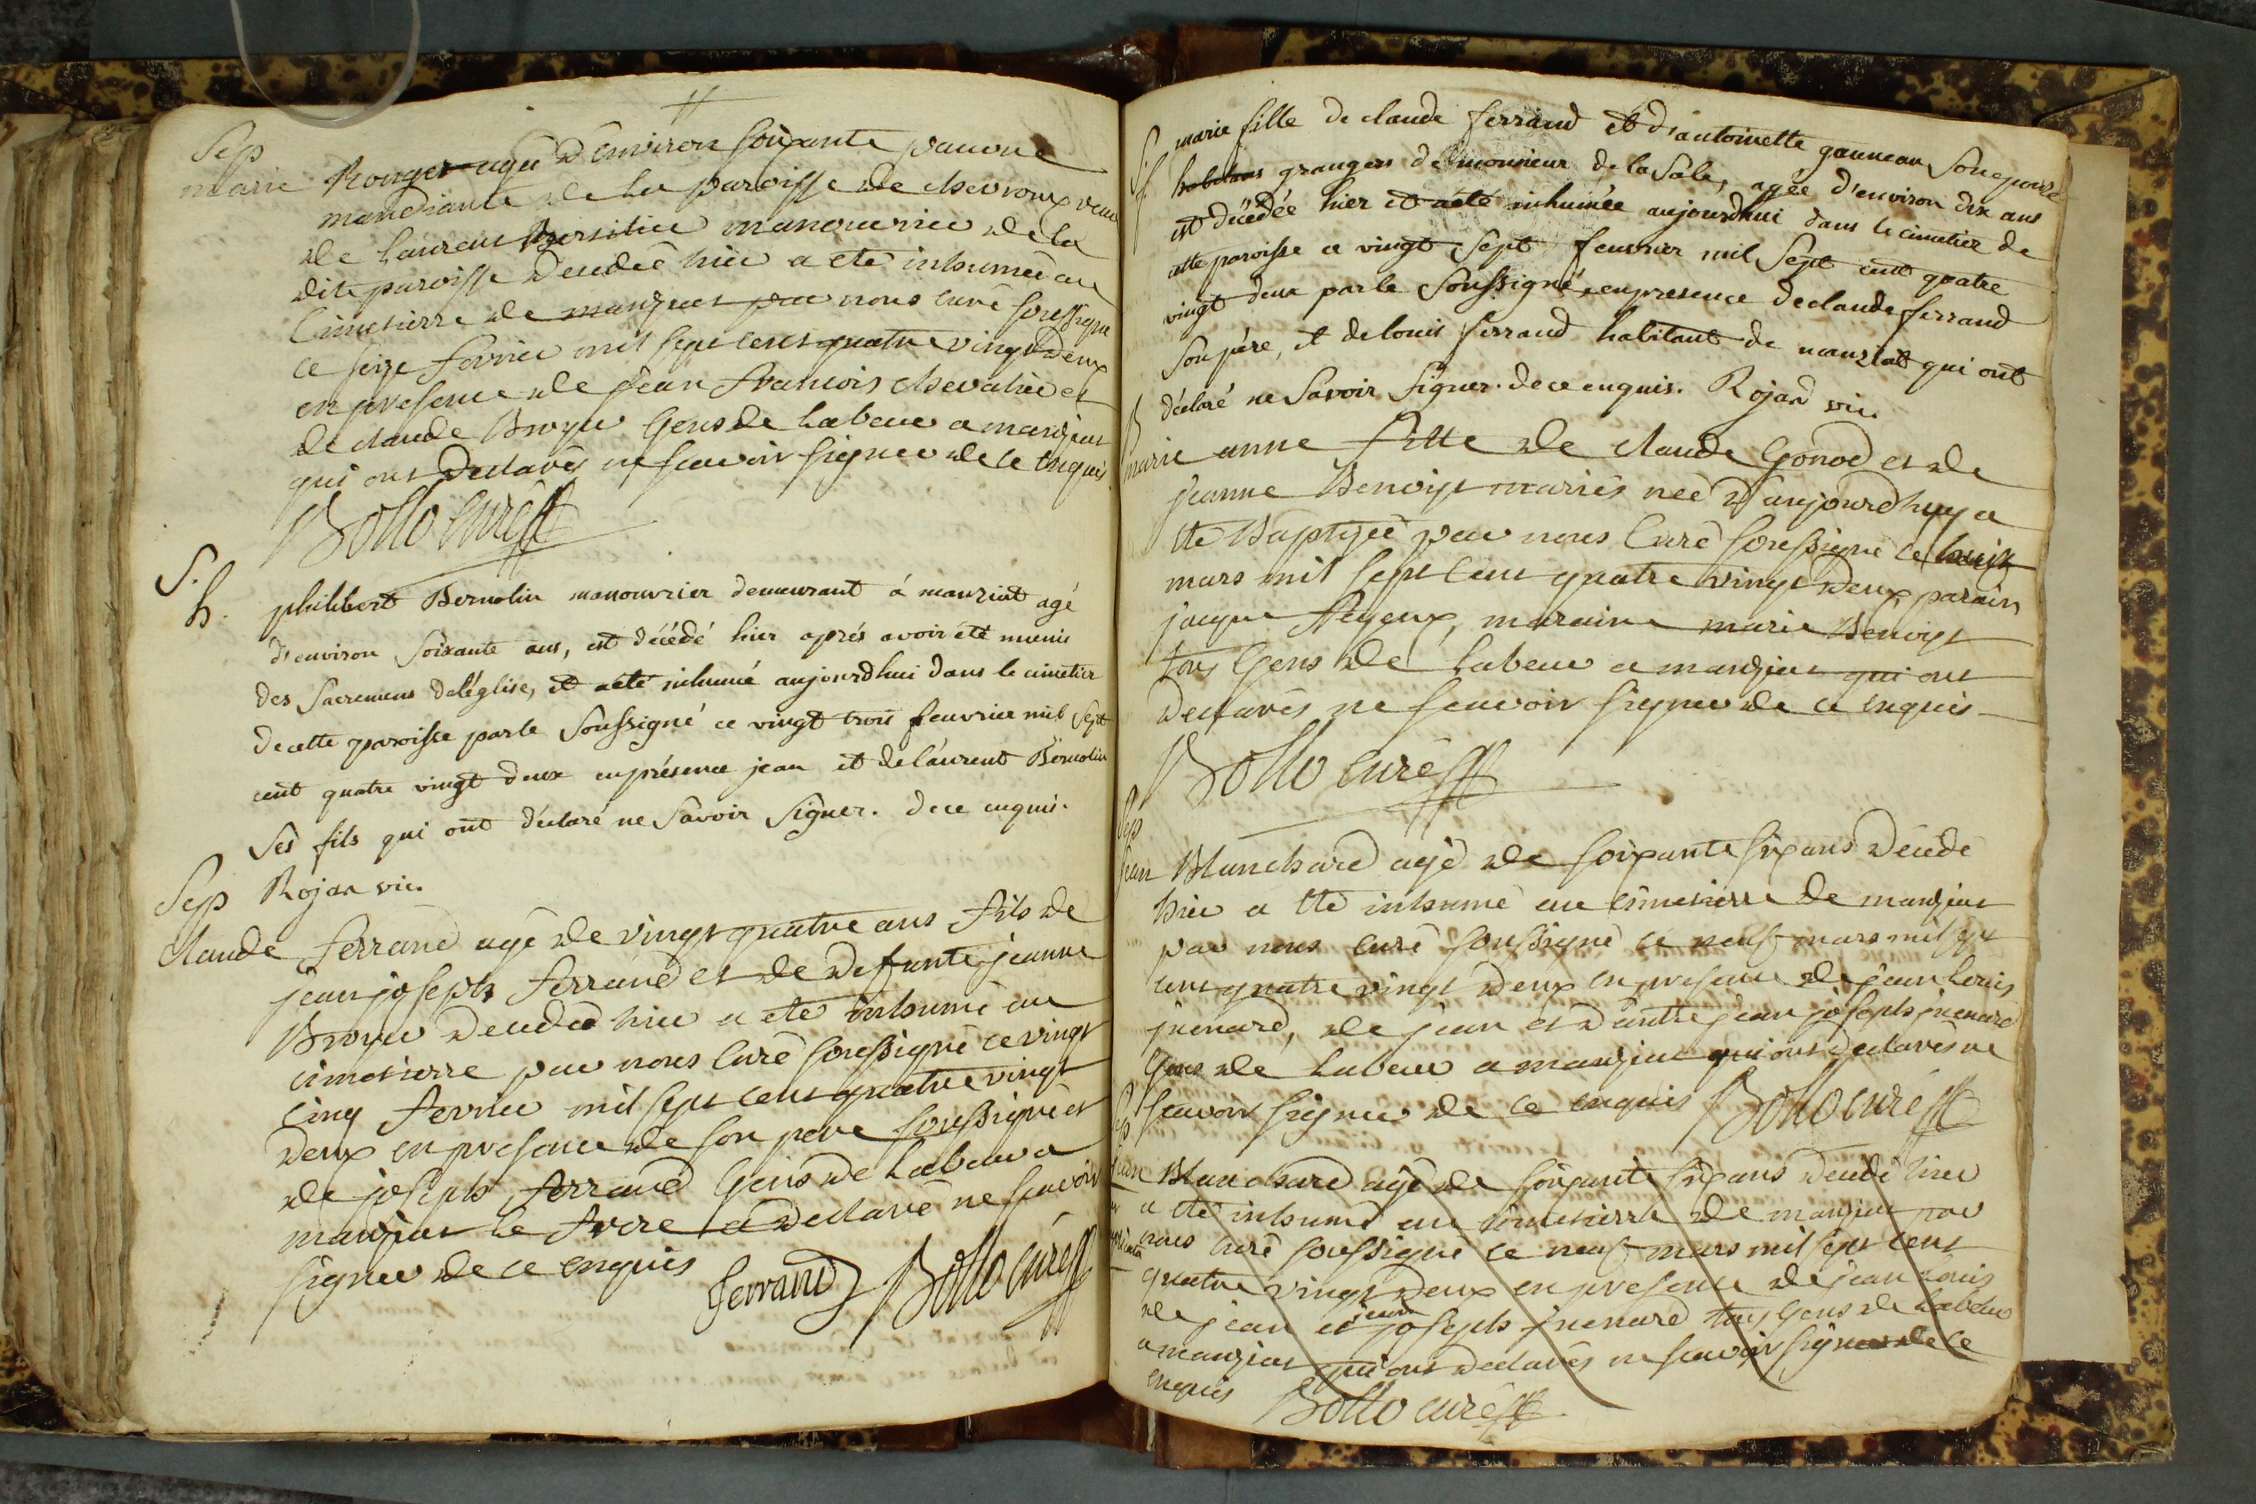 Sep
marie Rouger agée d'environ soixante pauvre
mandiante de la paroisse de chevroux veuve
de laurent manouvrier de la
dite paroisse decedeé hier a eté inhumeé au
Cimetierre de manziat par nous curé soussigné
ce seize fevrier mil sept cent quatre vingt deux
en presence de jean francois chevalier et
de claude Broyer Gens de labeur a manziat
qui ont declarés ne scavoir signer de ce enquis
Bollo curé
S.
h. philibert Bernolin manouvrier demeurant à manziat agé
d'environ soixante ans, est décédé hier aprés avoir été muni
des sacremens del'église, et aété inhumé aujourdhui dans le cimetier
decette paroisse parle soussigné ce vingt trois feuvrier mil sept
cent quatre vingt deux enprésence jean et de laurent Bernolin
ses fils qui ont déclaré ne savoir signer. dece enquis.
Rojat vic.
Sep
claude ferrand agé de vingt quatre ans fils de
jean joseph ferrand et de defunte jeanne
Broyer decedé hier a eté inhumé au
cimetierre par nous curé soussigné ce vingt
cinq fevrier mil sept cent quatre vingt
deux en presence de son pere soussigné et
de joseph ferrand Gens de labeur a
manziat le frere a declaré ne scavoir
signer de ce enquis
ferrand Bollo curé
S.
f. marie fille de claude ferrand et d'antoinette gauneau son epouse
habitans grangers de monsieur de la Sale, agée d'environ dix ans
est décédée hier et aété inhumée aujourdhui dans le cimetier de
cette paroisse ce vingt sept feuvrier mil sept cent quatre
vingt deux parle soussigné, enpresence declaude ferrand
son père, et delouis ferrand habitant de manziat qui ont
déclaré ne savoir signer. dece enquis. Rojat vic.
B
marie anne fille de claude Gonod et de
jeanne Benoist mariés neé d'aujourd'huy a
eté Baptiseé par nous Curé soussigné ce huit
mars mil sept cent quatre vingt deux, parain
jacque feyeux, maraine marie Benoist
tous Gens de labeur a manziat qui ont
declarés ne scavoir signer de ce enquis
Bollo curé
Sep
jean Blanchard agé de soixante six ans decedé
hier a eté inhumé au cimetierre de manziat
par nous curé soussigné ce neuf mars mil sept
cent quatre vingt deux en presence de jean louis
juenard, de jean et d'autre jean joseph juenard
Gens de labeur a manziat qui ont declarés ne
scavoir signer de ce enquis Bollo curé
Sep
jean Blanchard agé de soixante six ans decedé hier
a eté inhumé au cimetierre de manziat par
nous curé soussigné ce neuf mars mil sept cent
quatre vingt deux en presence de jean louis
de jean et jean joseph juenard tous Gens de labeur
a manziat qui ont declarés ne scavoir signer de ce
enquis Bollo curé